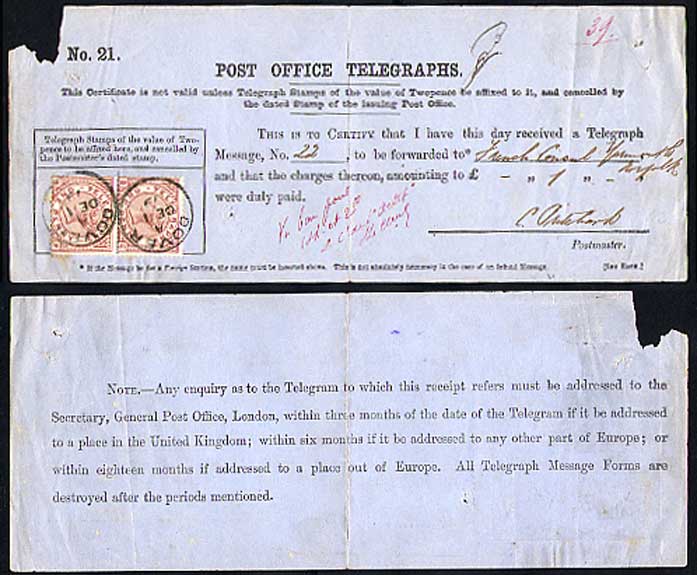 No. 21.
39.
POST OFFICE TELEGRAPHS.
This Certificate is not valid unless Telegraph Stamps of the value of Twopence be affixed to it, and cancelled by
the dated Stamp of the issuing Post Office.
Telegraph Stamps of the value of Two-
pence to be affixed here, and cancelled by
the Postmaster's dated stamp.
THIS IS TO CERTIFY that I have this day received a Telegraph
Message, No. 22, to be forwarded to* French Consul Yarmouth
Norfolk
and that the charges thereon, amounting to £ " 1 "
were duly paid.
DOVER
A
DE 11
DOVER
A
DE 11
Postmaster.
* If the Message be for a Foreign Station, the name must be inserted above. This is not absolutely necessary in the case of an Inland Message.
[See Over.]
NOTE.—Any enquiry as to the Telegram to which this receipt refers must be addressed to the
Secretary, General Post Office, London, within three months of the date of the Telegram if it be addressed
to a place in the United Kingdom; within six months if it be addressed to any other part of Europe; or
within eighteen months if addressed to a place out of Europe. All Telegraph Message Forms are
destroyed after the periods mentioned.